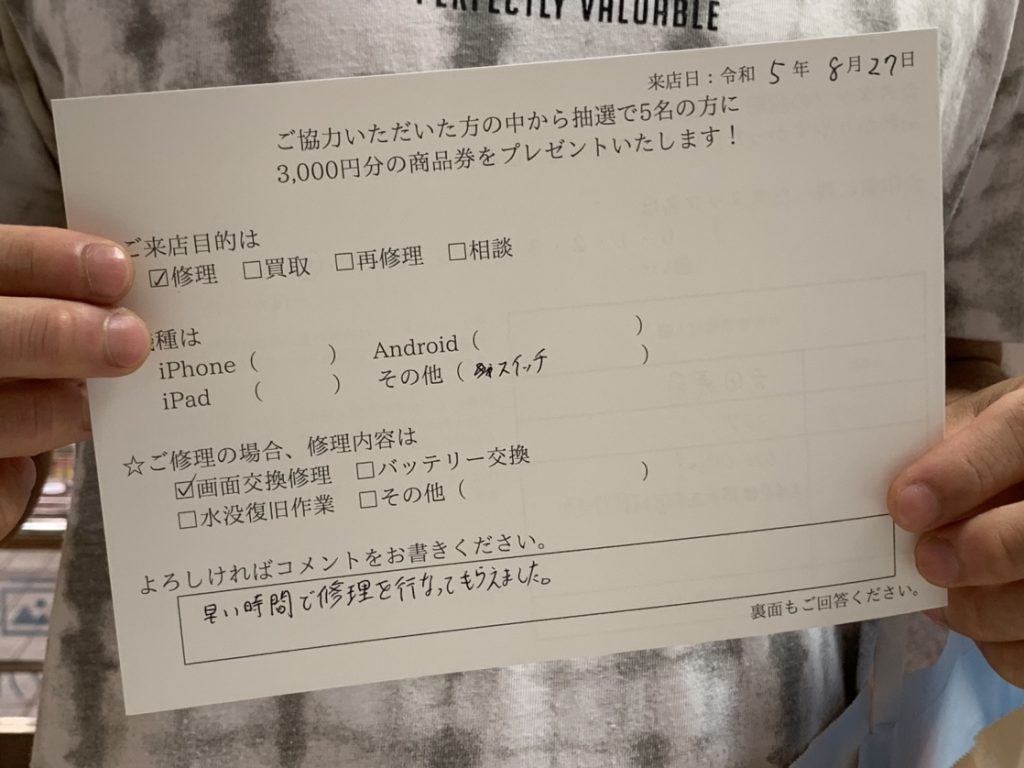 PERFECTLY VALUABLE
来店日：令和 5 年 8月27日
ご協力いただいた方の中から抽選で5名の方に
3,000円分の商品券をプレゼントいたします！
ご来店目的は
☑修理 □買取 □再修理 □相談
種は
iPhone（ ） Android（ ）
iPad （ ） その他（ スイッチ ）
☆ご修理の場合、修理内容は
☑画面交換修理 □バッテリー交換
□水没復旧作業 □その他（ ）
よろしければコメントをお書きください。
早い時間で修理を行なってもらえました。
裏面もご回答ください。